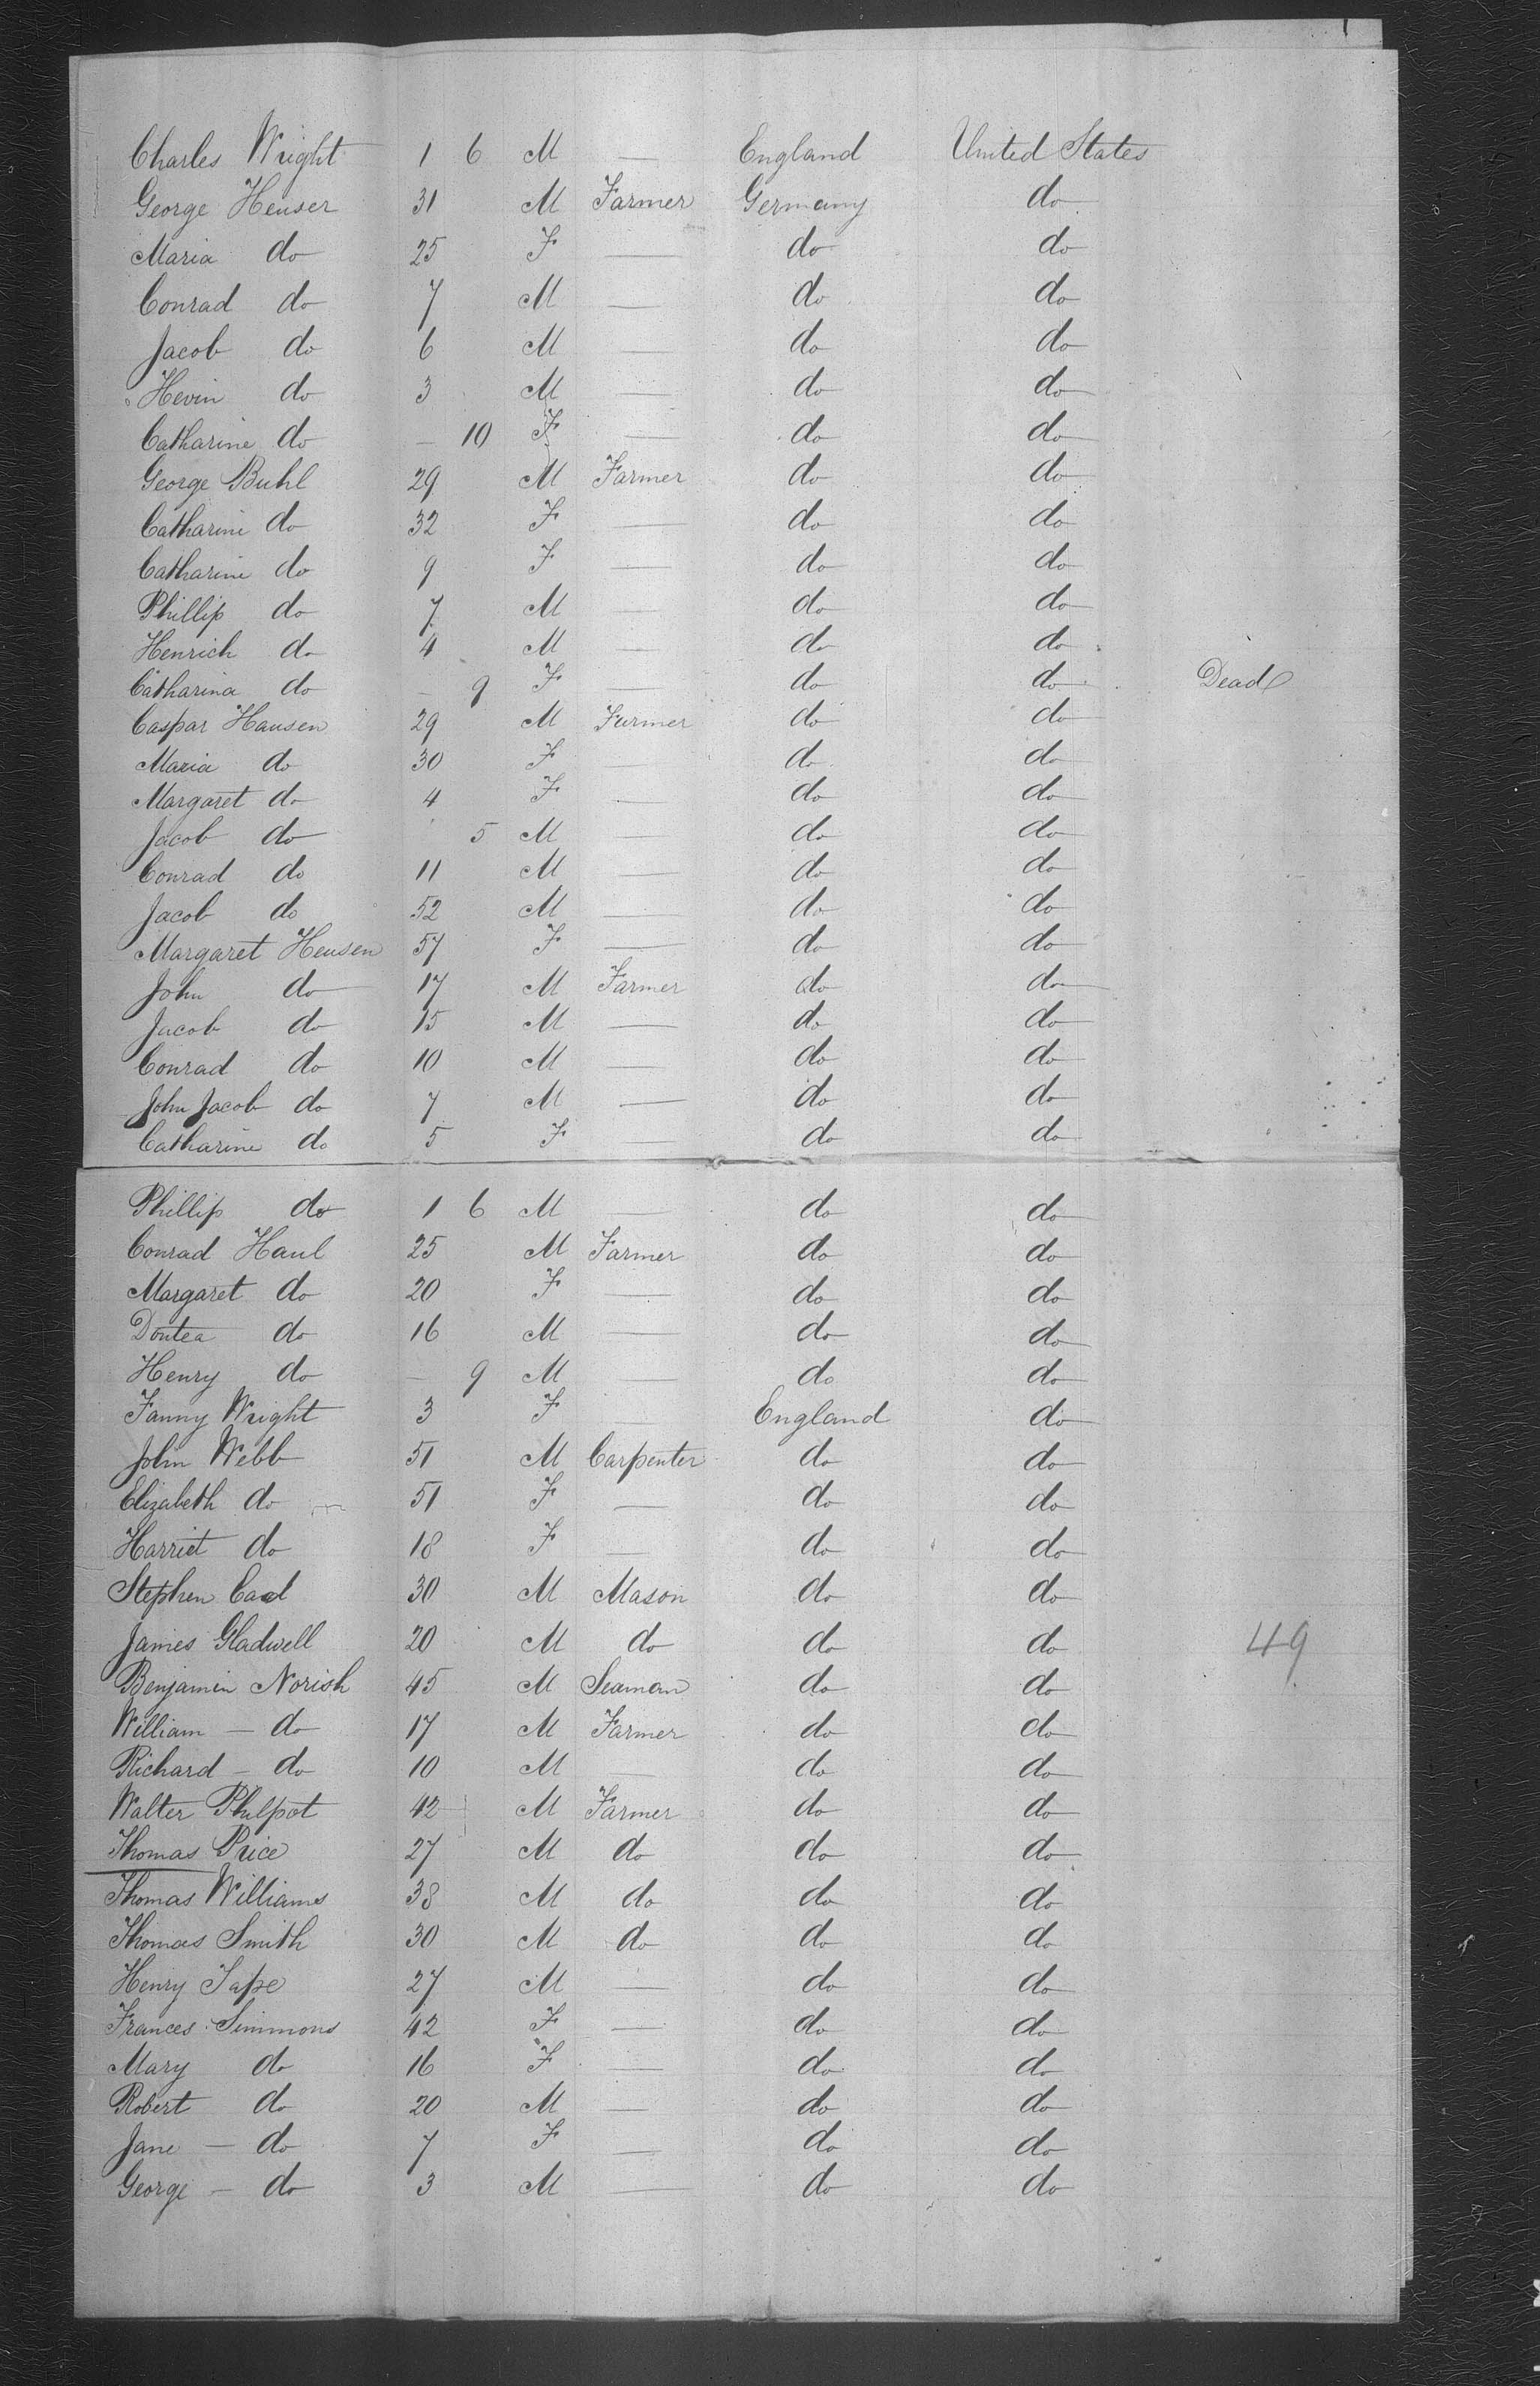 Charles Wright 1 6 M — England United States
George Heuser 31 M Farmer Germany do
Maria do 25 F — do do
Conrad do 7 M — do do
Jacob do 6 M — do do
Hevin do 3 M — do do
Catharine do — 10 F — do do
George Buhl 29 M Farmer do do
Catharine do 32 F — do do
Catharine do 9 F — do do
Phillip do 7 M — do do
Henrich do 4 M — do do
Catharina do — 9 F — do do Dead
Caspar Hausen 29 M Farmer do do
Maria do 30 F — do do
Margaret do 4 F — do do
Jacob do 5 M — do do
Conrad do 11 M — do do
Jacob do 52 M — do do
Margaret Heusen 57 F — do do
John do 17 M Farmer do do
Jacob do 15 M — do do
Conrad do 10 M — do do
John Jacob do 7 M — do do
Catharine do 5 F — do do
Phillip do 1 6 M — do do
Conrad Haul 25 M Farmer do do
Margaret do 20 F — do do
Dontea do 16 M — do do
Henry do — 9 M — do do
Fanny Wright 3 F — England do
John Webb 51 M Carpenter do do
Elizabeth do 51 F — do do
Harriet do 18 F — do do
Stephen 30 M Mason do do
James Gladwell 20 M do do do 49
Benjamin Norish 45 M Seaman do do
William — do 17 M Farmer do do
Richard — do 10 M — do do
Walter Philpot 42 M Farmer do do
Thomas Price 27 M do do do
Thomas Williams 38 M do do do
Thomas Smith 30 M do do do
Henry Tape 27 M — do do
Frances Simmons 42 F — do do
Mary do 16 F — do do
Robert do 20 M — do do
Jane — do 7 F — do do
George — do 3 M — do do